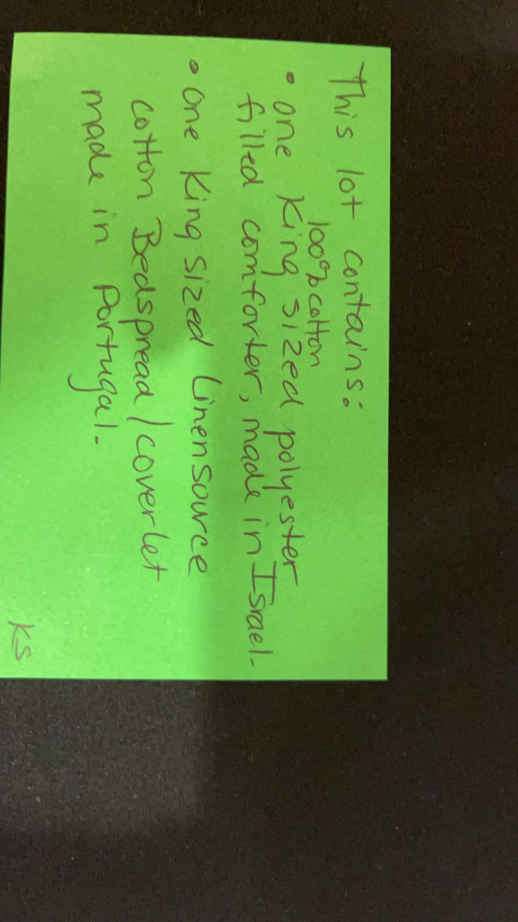 This lot contains:
100% cotton
• One King sized polyester
filled comforter, made in Israel-
• One King sized Linensource
cotton Bedspread/coverlet
made in Portugal.
KS